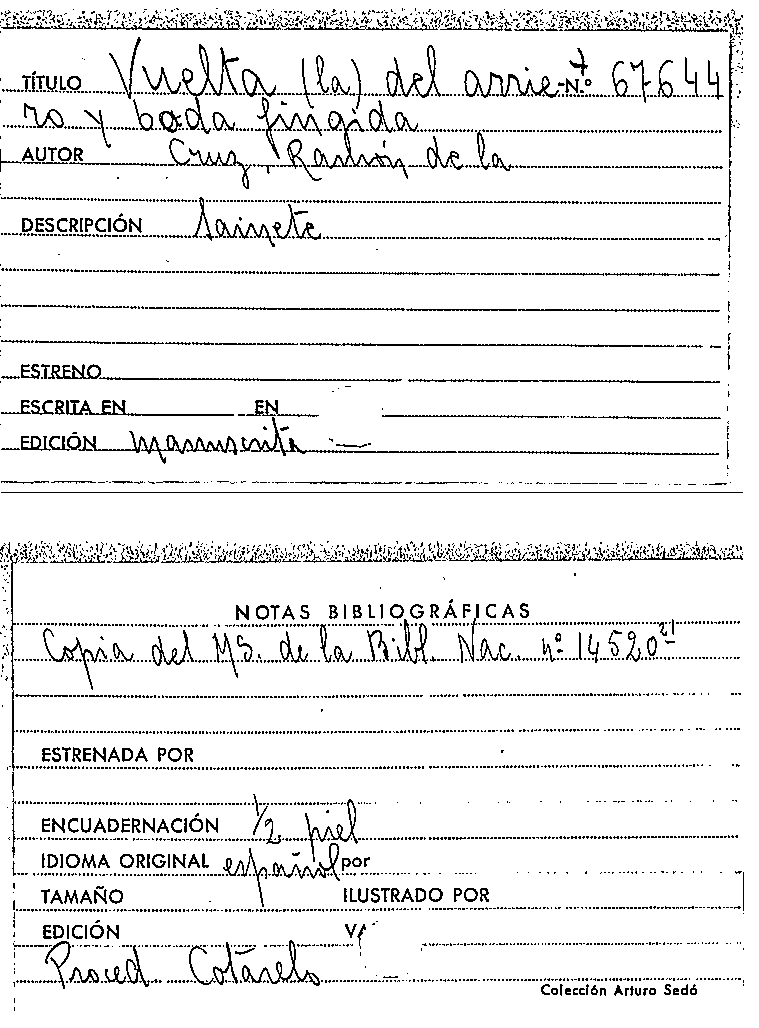 TÍTULO Vuelta (la) del arrie- N.º 67644
ro y boda fingida
AUTOR Cruz, Ramón de la
DESCRIPCIÓN Sainete
ESTRENO
ESCRITA EN EN
EDICIÓN manuscrita
NOTAS BIBLIOGRÁFICAS
Copia del MS. de la Bibl. Nac. nº 14520²¹
ESTRENADA POR
ENCUADERNACIÓN 1/2 piel
IDIOMA ORIGINAL español por
TAMAÑO ILUSTRADO POR
EDICIÓN
Proced Cotarelo
Colección Arturo Sedó